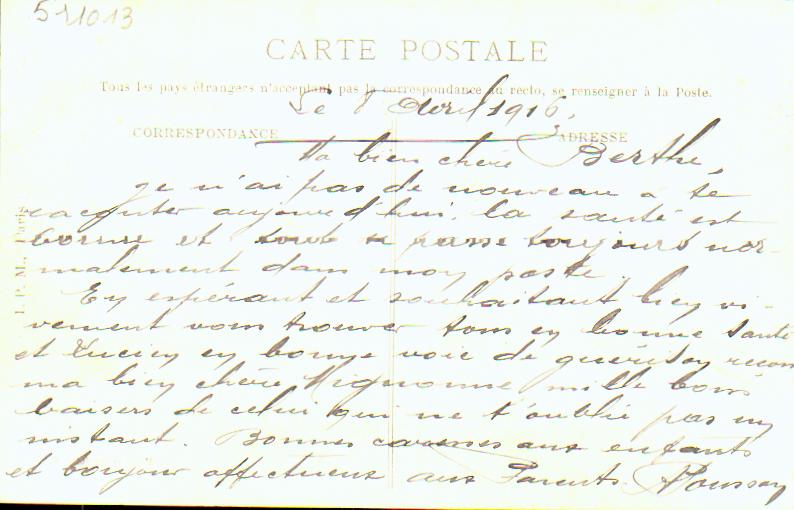 511013
CARTE POSTALE
Tous les pays étrangers n'acceptant pas la correspondance au recto, se renseigner à la Poste.
Le 8 Avril 1916.
CORRESPONDANCE ADRESSE
Ma bien chère Berthe,
Je n'ai pas de nouveau à te
raconter aujourd'hui, la santé est
bonne et tout se passe toujours nor-
malement dans mon poste.
En espérant et souhaitant bien vi-
vement vous trouver tous en bonne santé
et Lucien en bonne voie de guérison recois
ma bien chère Mignonne mille bons
baisers de celui qui ne t'oublie pas un
instant. Bonnes caresses aux enfants
et bonjour affectueux aux Parents.
I. P. M., Paris